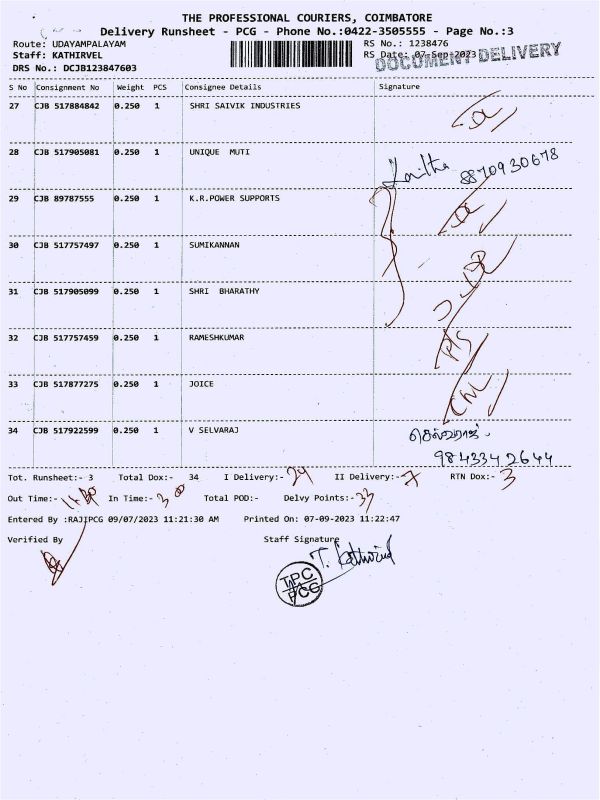 THE PROFESSIONAL COURIERS, COIMBATORE
Delivery Runsheet - PCG - Phone No.:0422-3505555 - Page No.:3
Route: UDAYAMPALAYAM RS No.: 1238476
Staff: KATHIRVEL RS Date: 07-Sep-2023
DOCUMENT DELIVERY
DRS No.: DCJB123847603
S No Consignment No Weight PCS Consignee Details Signature
27 CJB 517884842 0.250 1 SHRI SAIVIK INDUSTRIES
28 CJB 517905081 0.250 1 UNIQUE MUTI
8870930678
29 CJB 89787555 0.250 1 K.R.POWER SUPPORTS
30 CJB 517757497 0.250 1 SUMIKANNAN
31 CJB 517905099 0.250 1 SHRI BHARATHY
32 CJB 517757459 0.250 1 RAMESHKUMAR
33 CJB 517877275 0.250 1 JOICE
34 CJB 517922599 0.250 1 V SELVARAJ செல்வராஜ்
9843342644
Tot. Runsheet:- 3 Total Dox:- 34 I Delivery:- 24 II Delivery:- 7 RTN Dox:- 3
Out Time:- In Time:- 3 00 Total POD:- Delvy Points:- 33
Entered By :RAJIPCG 09/07/2023 11:21:30 AM Printed On: 07-09-2023 11:22:47
Verified By Staff Signature
T. Kathirvel
TPC
PCG